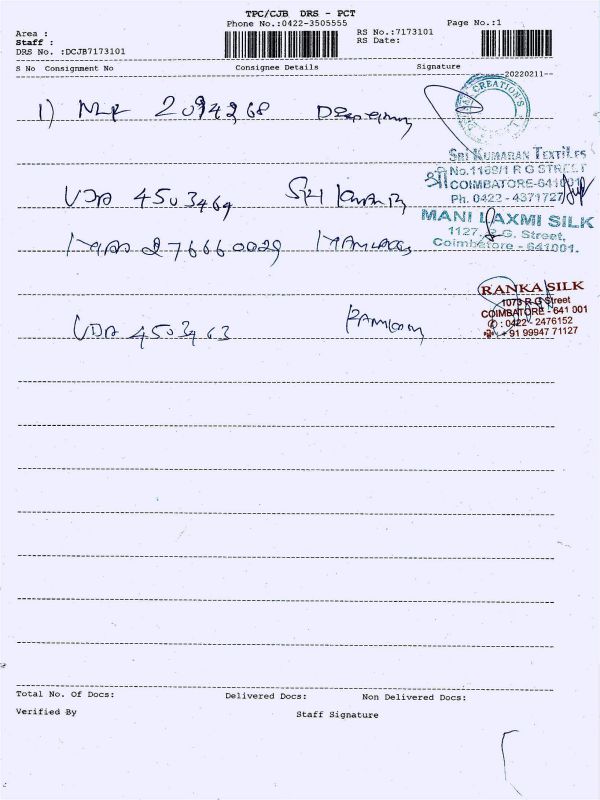 TPC/CJB DRS - PCT
Phone No.:0422-3505555
Page No.:1
Area :
Staff :
DRS No. :DCJB7173101
RS No.:7173101
RS Date:
S No Consignment No Consignee Details Signature
20220211
1)
CREATIONS
SRI KUMARAN TEXTILES
No.1169/1 R G STREET
श्री COIMBATORE-641001
Ph. 0422 - 4371727
VDA 4503469
MANI LAXMI SILK
1127, R.G. Street,
Coimbatore - 641001.
276660029
RANKA SILK
1073 R G Street
COIMBATORE - 641 001
: 0422 - 2476152
: + 91 99947 71127
VDA 4503463
Total No. Of Docs: Delivered Docs: Non Delivered Docs:
Verified By Staff Signature